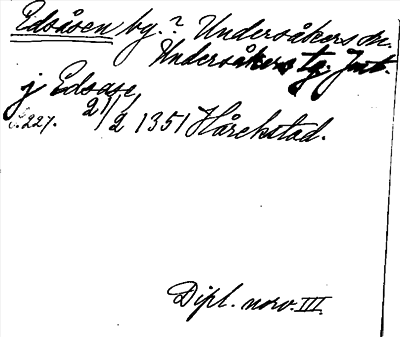 Edsåsen by.? Undersåkers sn.
Undersåkers tg. Jmt.
j Edsase
s. 227. 21/2 1351 Hårekstad.
Dipl. norv. III.